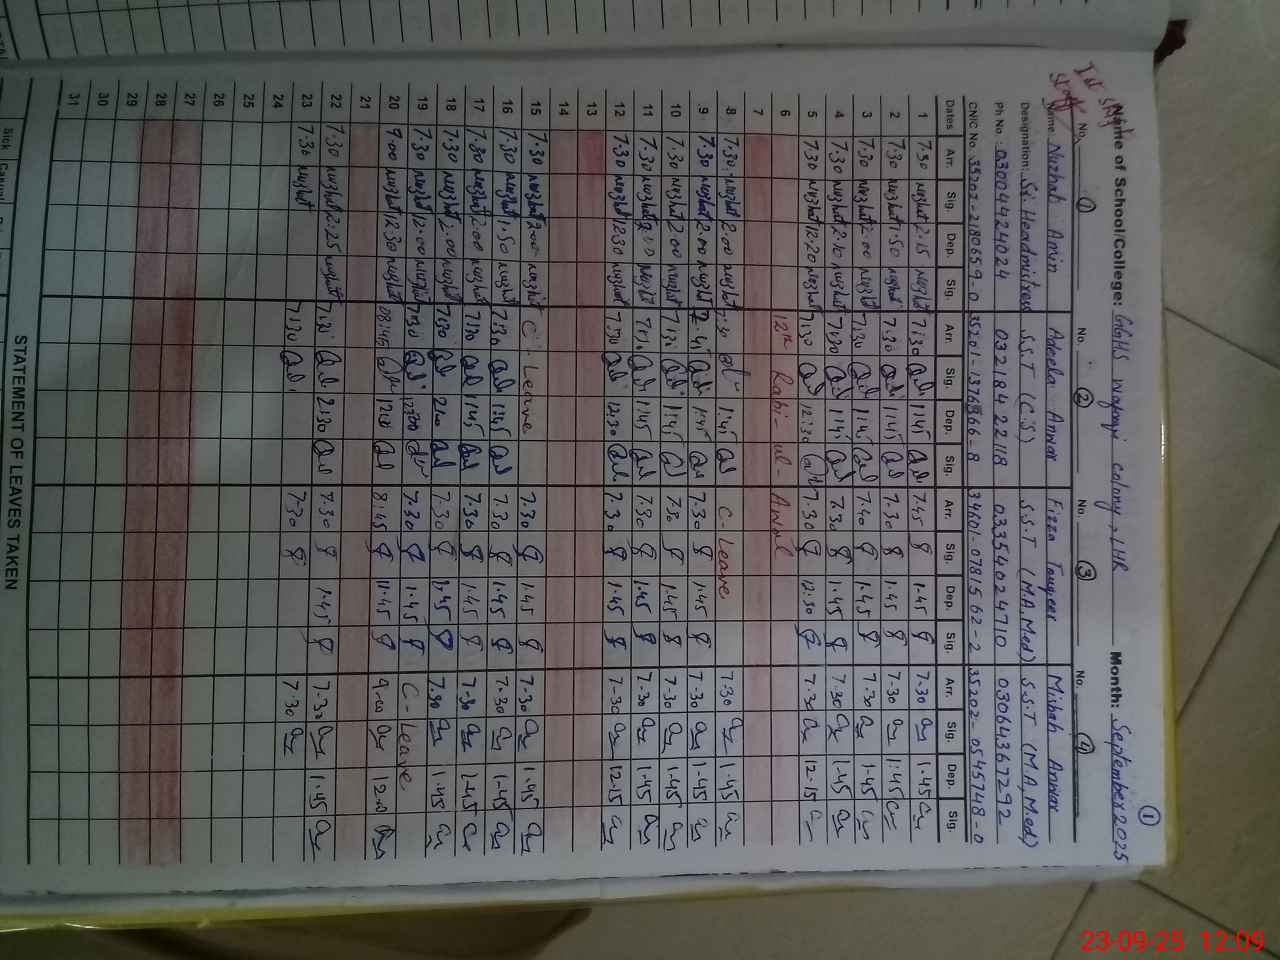 Ist Shift
Staff
Name of School/College: GGHS Wafaqi colony, LHR Month: September 2025
1
No. 1 No. 2 No. 3 No. 4
Name: Nuzhat Amin Adeela Anwar Fizza Touqeer Misbah Anwar
Designation: Sr. Headmistress S.S.T (C.S) S.S.T (M.A, M.ed) S.S.T (M.A, M.ed)
Ph No: 03004424024 0321 84 22118 03354024710 03064367292
CNIC No. 35202-2180659-0 35201-1376866-8 34601-0781562-2 35202-0545748-0
Dates Arr. Sig. Dep. Sig. Arr. Sig. Dep. Sig. Arr. Sig. Dep. Sig. Arr. Sig. Dep. Sig.
1 7.30 Nuzhat 2.15 Nuzhat 7:30 1:45 7.45 1.45 7.30 1.45
2 7.30 Nuzhat 1.50 Nuzhat 7:30 1:45 7.30 1.45 7.30 1:45
3 7.30 Nuzhat 2.00 Nuzhat 7:30 1:45 7.40 1.45 7.30 1.45
4 7.30 Nuzhat 2.10 Nuzhat 7:30 1:45 7.30 1.45 7.30 1.45
5 7.30 Nuzhat 12.20 Nuzhat 7:30 12:30 7.30 12.30 7.30 12.15
6 12th Rabi-ul-Awal
7
8 7.30 Nuzhat 2.00 Nuzhat 7:30 1:45 C-Leave 7.30 1.45
9 7.30 Nuzhat 2.00 Nuzhat 1:45 7.30 1.45 7.30 1.45
10 7.30 Nuzhat 2.00 Nuzhat 1:45 7.30 1.45 7.30 1.45
11 7.30 Nuzhat Nuzhat 1:45 7.30 1.45 7.30 1.45
12 7.30 Nuzhat 12.30 Nuzhat 7:30 12:30 7.30 1.45 7.30 12.15
13
14
15 7.30 Nuzhat 2.00 Nuzhat C-Leave 7.30 1.45 7.30 1.45
16 7.30 Nuzhat 1.50 Nuzhat 7:30 1:45 7.30 1.45 7.30 1.45
17 7.30 Nuzhat 2.00 Nuzhat 7:30 1:45 7.30 1.45 7.30 1.45
18 7.30 Nuzhat 2.00 Nuzhat 7:30 2:00 7.30 1.45 7.30 1.45
19 7.30 Nuzhat 12.00 Nuzhat 7:30 7.30 1.45 C-Leave
20 9.00 Nuzhat 12.30 Nuzhat 08:45 8:45 11.45 9.00 12.0
21
22 7.30 Nuzhat 2.25 Nuzhat 7:30 2:30 7.30 1.45 7.30 1.45
23 7.30 Nuzhat 7:30 7.30 7.30
24
25
26
27
28
29
30
31
STATEMENT OF LEAVES TAKEN
Sick Casual
23-09-25 12:09